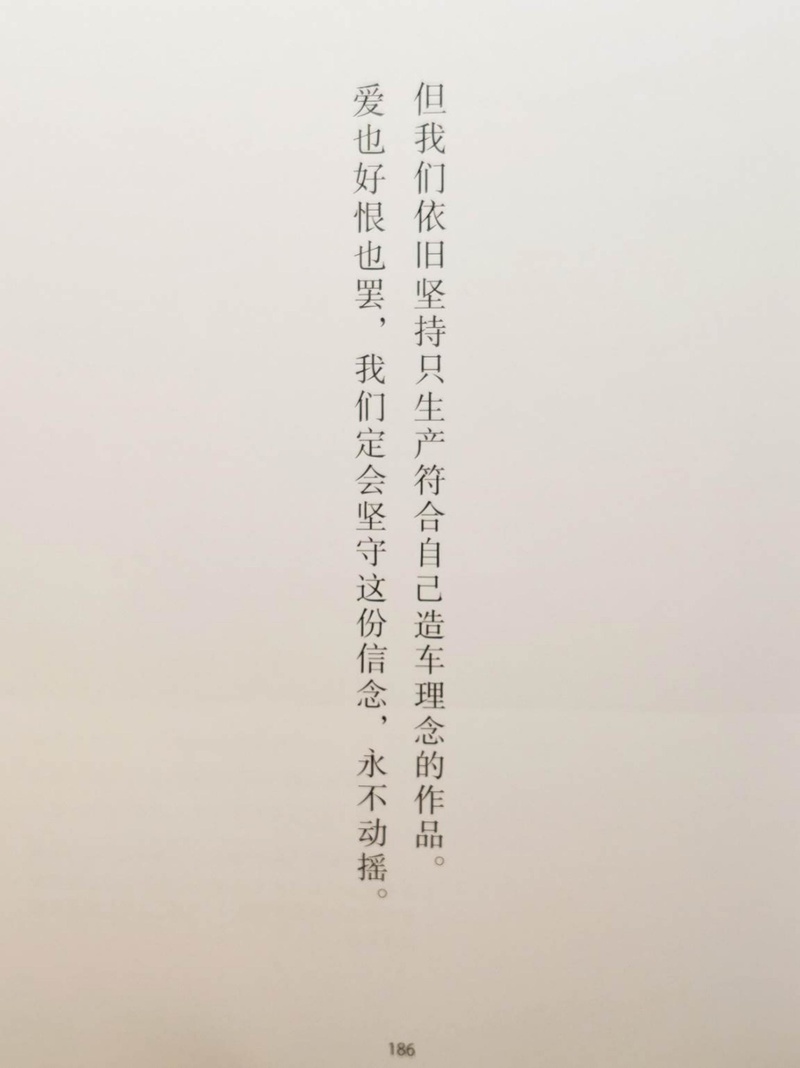 但我们依旧坚持只生产符合自己造车理念的作品。
爱也好恨也罢，我们定会坚守这份信念，永不动摇。
186